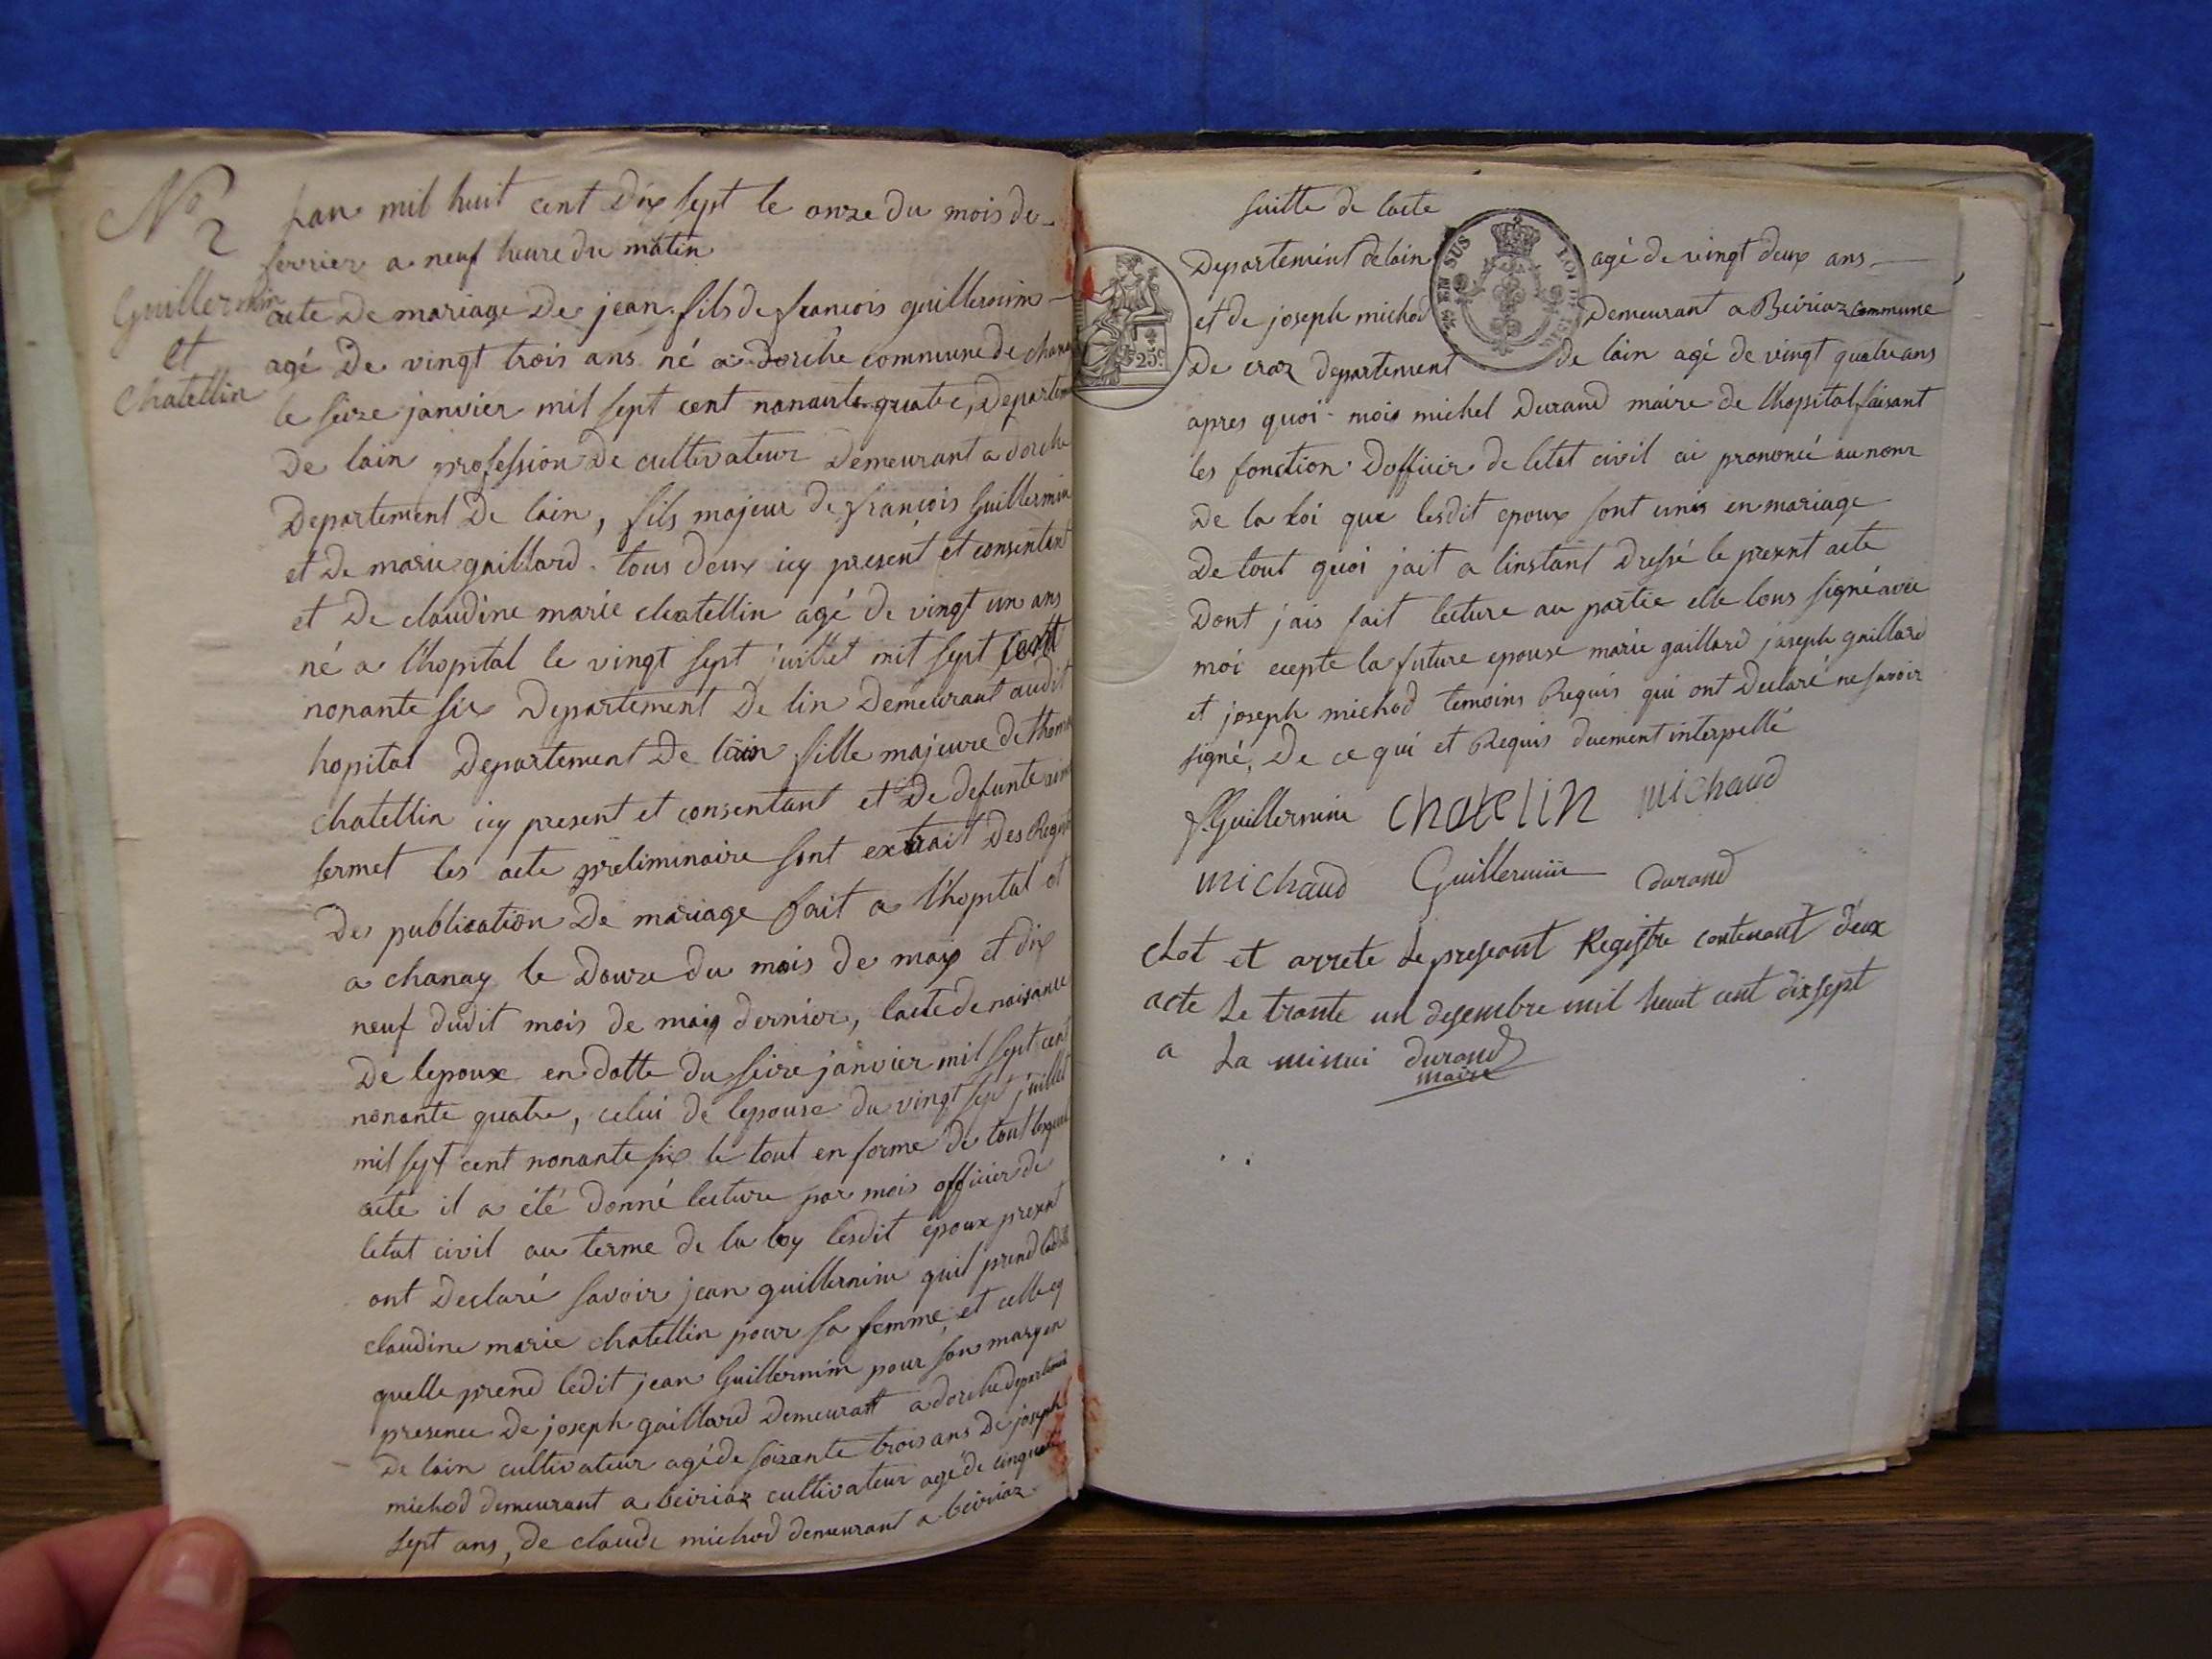 No 2
Guillermin
et
Chatellin
Lan mil huit cent Dix sept le onze du mois de
fevrier a neuf heure du matin
acte de mariage De jean fils de francois guillermin
agé De vingt trois ans né a dorche commune de chana
le seize janvier mil sept cent nonante quatre, Departem
De lain profession De cultivateur Demeurant a dorche
Departement De lain, fils majeur de francois Guillermin
et De marie gaillard tous deux icy present et consentant
et De claudine marie chatellin agé de vingt un ans
né a lhopital le vingt sept juillet mil sept cent
nonante six Departement De lin Demeurant audit
hopital Departement De lain fille majeure de thoma
chatellin icy present et consentant et De defunte
fermet les acte preliminaire sont extrait Des Regist
Des publication De mariage fait a lhopital et
a chanay le Douze du mois de may et dix
neuf dudit mois de may dernier, lacte de naisance
De lepoux en datte du seize janvier mil sept cent
nonante quatre, celui de lepouse du vingt sept juillet
mil sept cent nonante six le tout en forme de tout lesquel
acte il a été donné lecture par mois officier de
letat civil au terme de la loy lesdit epoux present
ont Declaré savoir jean guillermin quil prend ladite
claudine marie chatellin pour sa femme, et celle cy
quelle prend ledit jean Guillermin pour son mary en
presence De joseph gaillard Demeurant a dorche departement
De lain cultivateur agé de soixante trois ans De joseph
michod demeurant a beiriaz cultivateur agé de cinquante
sept ans, de claude michod demeurant a beiriaz
suitte de lacte
Departement de lain agé de vingt deux ans
et de joseph michod Demeurant a Beiriaz commune
De craz departement de lain agé de vingt quatre ans
apres quoi mois michel Durand maire de lhopital faisant
les fonction Dofficier de letat civil ai prononcé au nom
De la Loi que lesdit epoux sont unis en mariage
De tout quoi jait a linstant Dressé le present acte
Dont jais fait lecture au partie elle lons signé avec
moi eepte la future epouse marie gaillard joseph gaillard
et joseph michod temoins Requis qui ont Declaré ne savoir
signé, De ce qui et Requis duement interpellé
f Guillermin chatelin michaud
michaud Guillermin durand
clot et arrete le preseant Registre contenant deux
acte Le trante un desembre mil heuit cent dix sept
a La durand
maire
SUS
25c